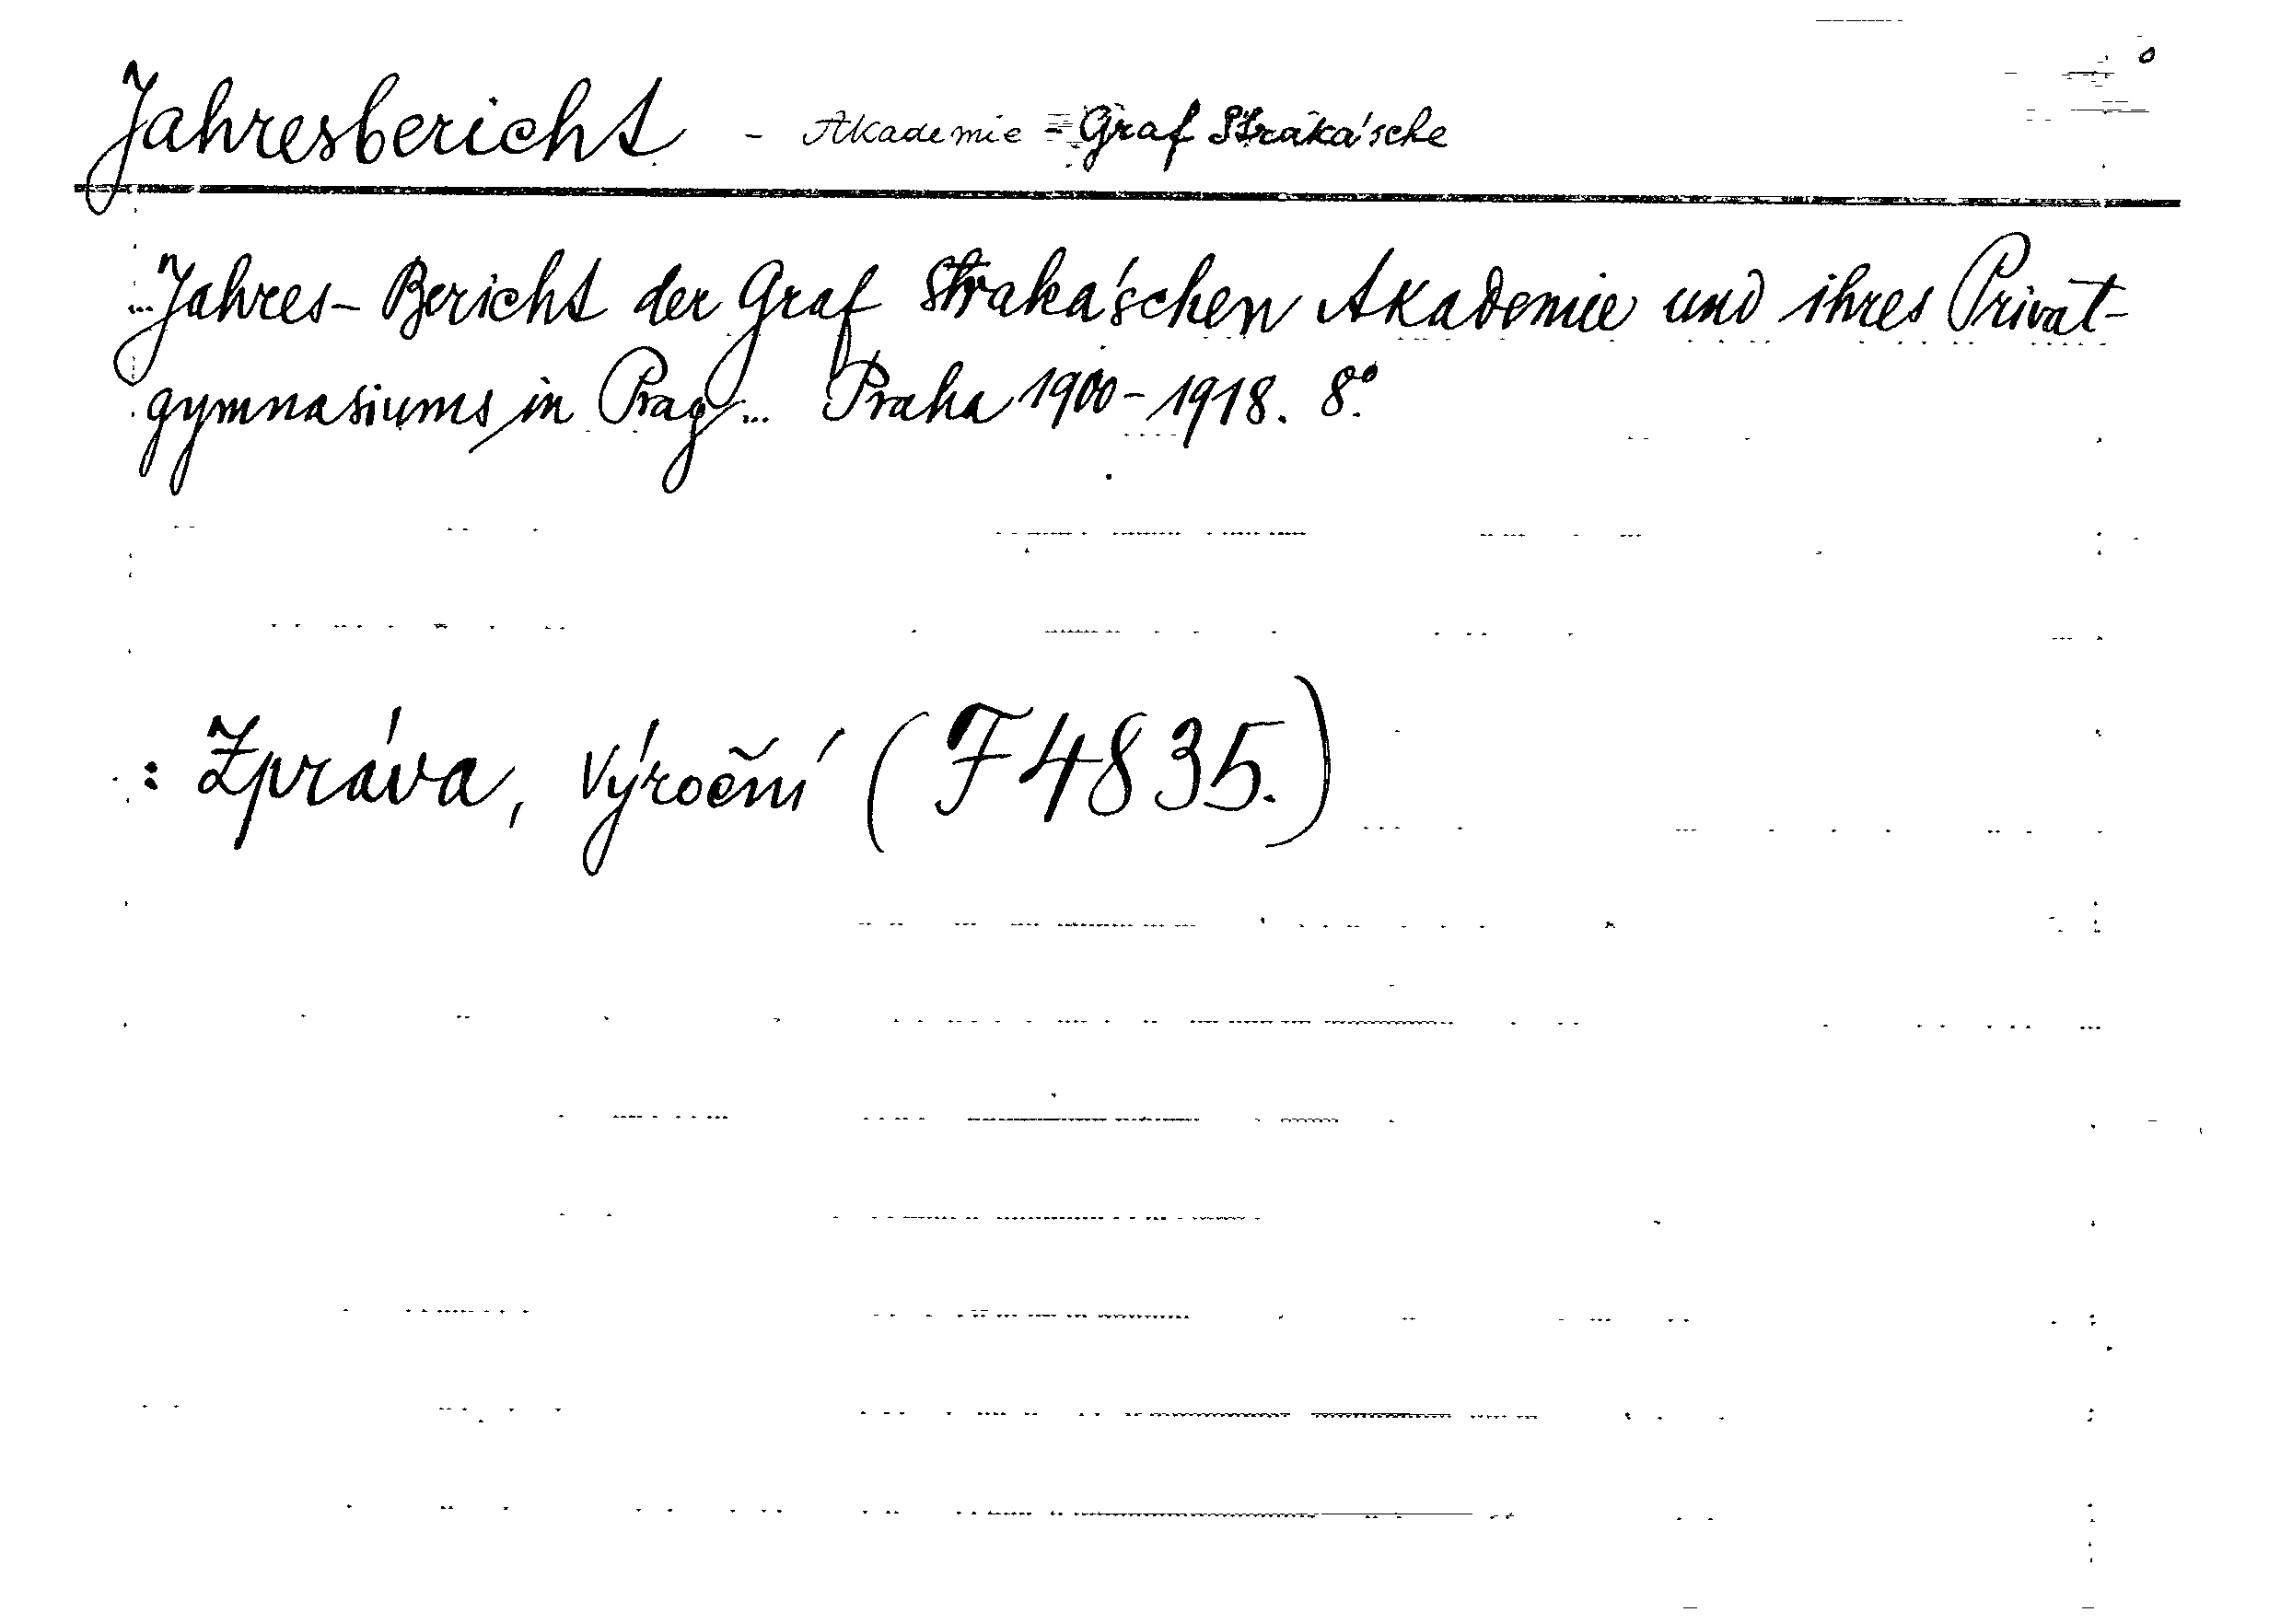 Jahresbericht - Akademie - Graf Straka'sche
...Jahres-Bericht der Graf Straka'schen Akademie und ihres Privat-
gymnasiums in Prag... Praha 1900-1918. 8°.
: Zpráva, výroční (F 4835.)